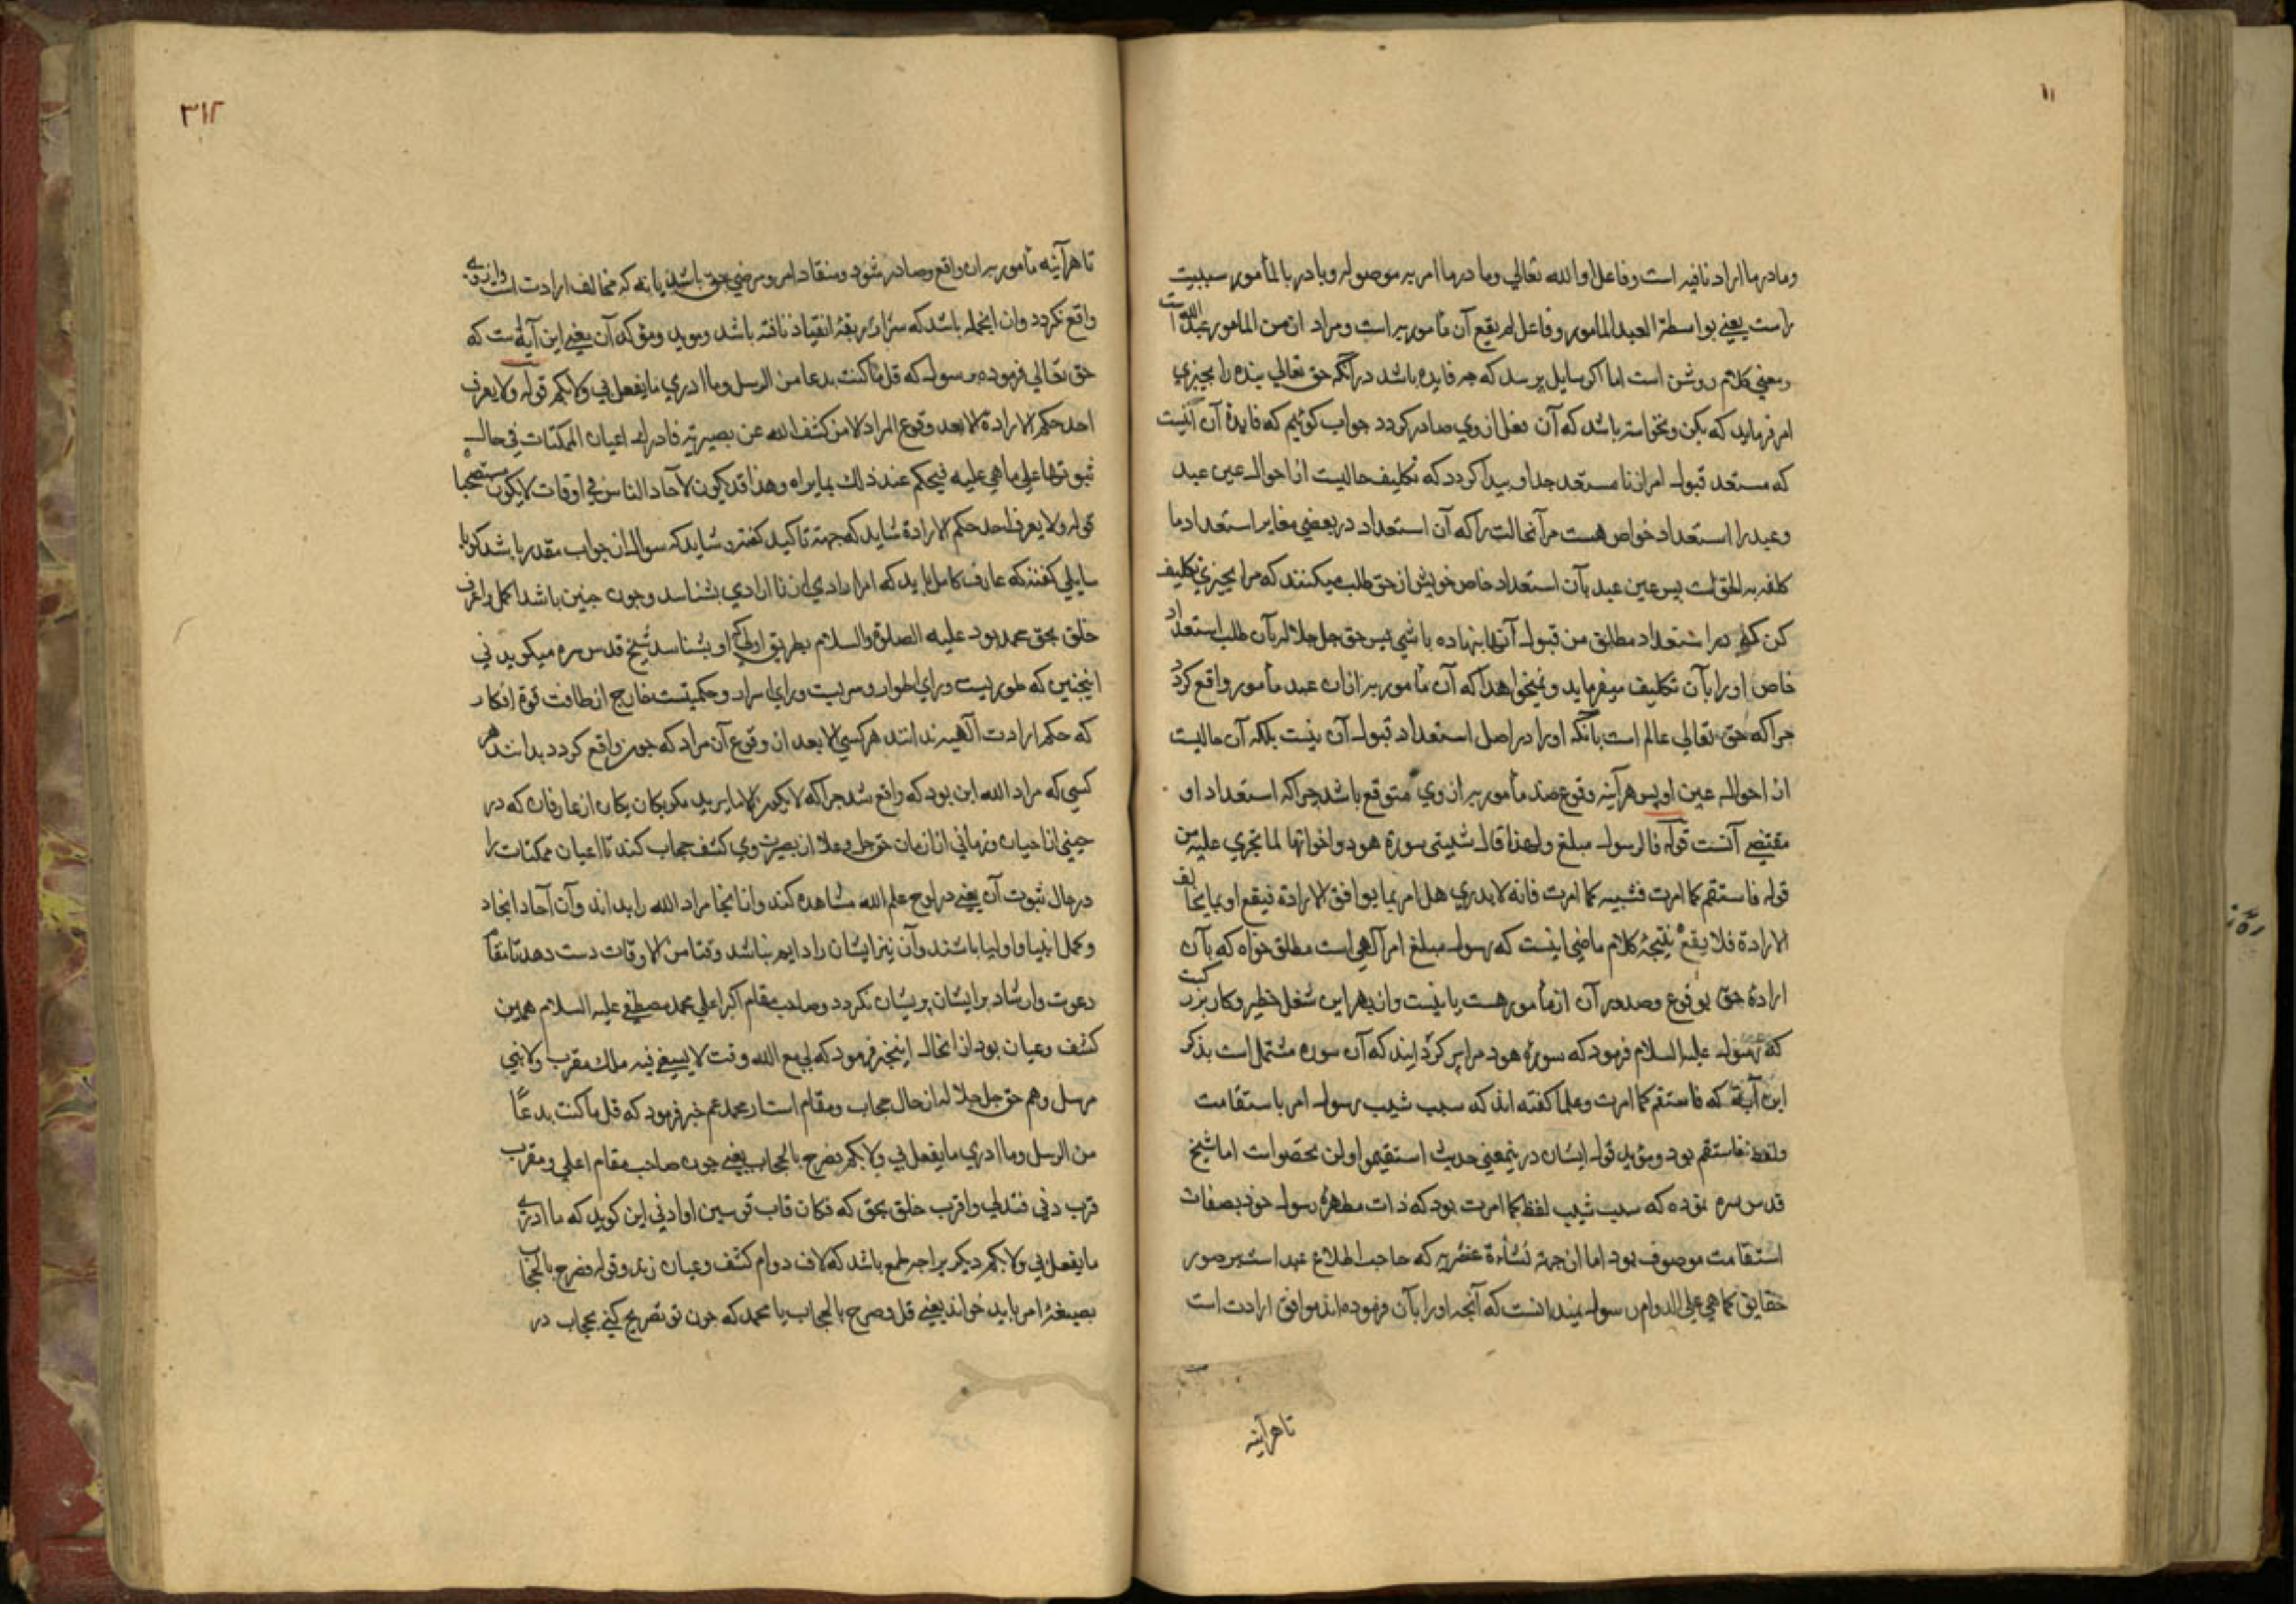 ۱۱
وما در ما اراد نافیه است وفاعل او الله تعالی وما در ما امر به موصوله وبا در بالمأمور سببیت
راست یعنی بواسطة العبد المامور وفاعل لم یقع آن مأمور به است ومراد از من المامور عبد الله است
ومعنی کلام روشن است اما اکر سایل پرسد که چه فایده باشد در آنکه حق تعالی بنده را بچیزی
امر فرماید که بکن ونخواسته باشد که آن فعل از وی صادر کردد جواب کوئیم که فایدهٔ آن آنست
که مستعد قبول امر از نا مستعد جدا و پیدا کردد که تکلیف حالیست از احوال عین عبد
وعبد را استعداد خواص هست مر آنحالت را که آن استعداد در بعضی مغایر استعداد ما
کلف به الحق است پس عین عبد بآن استعداد خاص خویش از حق طلب میکنند که مرا بچیزی تکلیف
کن که مرا استعداد مطلق من قبول آنها بنهاده باشی پس حق جل جلاله بآن طلب استعداد
خاص او را بآن تکلیف میفرماید ونمیخواهد که آن مأمور به از آن عبد مأمور واقع کردد
چرا که حق تعالی عالم است بآنکه او را در اصل استعداد قبول آن نیست بلکه آن حالیست
از احوال عین او پس هرآینه وقوع ضد مأمور به از وی متوقع باشد چرا که استعداد او
مقتضی آنست قوله فالرسول مبلغ ولهذا قال شیبتنی سورة هود واخواتها لما تجری علیه من
قوله فاستقم کما امرت فشیبه کما امرت فانه لا یدری هل امر بما یوافق الارادة فیقع او بما یخالف
الارادة فلا یقع نتیجهٔ کلام ماضی اینست که رسول مبلغ امر آلهی است مطلق خواه که بآن
ارادهٔ حق بوقوع وصدور آن از مأمور هست یا نیست واز بهر این شغل خطیر وکار بزرکیست
که رسول علیه السلام فرمود که سورهٔ هود مرا پیر کردانید که آن سوره مشتمل است بذکر
این آیة که فاستقم کما امرت وعلما کفته اند که سبب شیب رسول امر باستقامت
ولفظ فاستقم بود ومؤید قول ایشان درینمعنی حدیث استقیموا ولن تحصوا است اما شیخ
قدس سره نموده که سبب شیب لفظ کما امرت بود که ذات مطهرهٔ رسول خود بصفات
استقامت موصوف بود اما از جهة نشأة عنصریه که حاجب اطلاع عبد است بر صور
حقایق کما هی علی الدوام رسول نمیدانست که آنچه او را بآن فرموده اند موافق ارادت است
تا هرآینه
۳۱۲
تا هرآینه مأمور به از او واقع وصادر شود ومنقاد امر ومرضی حق باشد یا نه که مخالف ارادت است واز وی
واقع نکردد وان از جمله باشد که سر از ربقهٔ انقیاد تافته باشد ومؤید ومؤکد آن یعنی این آیة است که
حق تعالی فرموده برسول که قل ما کنت بدعا من الرسل وما ادری ما یفعل بی ولا بکم قوله ولا یعرف
احد حکم الارادة الا بعد وقوع المراد الا من کشف الله عن بصیرته فادرک اعیان الممکنات فی حال
ثبوتها علی ما هی علیه فیحکم عند ذلک بما یراه وهذا قد یکون لآحاد الناس فی اوقات لا یکون مستصحبا
قوله ولا یعرف احد حکم الارادة شاید که جهة تاکید کفته وشاید که سوال از جواب مقدر باشد کویا
سایلی کفته که عارف کامل باید که امر ارادی از نا ارادی بشناسد وچون چنین باشد اکمل واعرف
خلق بحق محمد بود علیه الصلوة والسلام بطریق اولی که او بشناسد شیخ قدس سره میکوید نی
اینچنین که طوریست ورای اطوار وسریست ورای اسرار وحکمیتست خارج از طاقت قوة افکار
که حکم ارادت آلهیه نداند هر کسی الا بعد از وقوع آن مراد که چون واقع کردد بداند هر
کسی که مراد الله این بود که واقع شد چرا که لا یکون الا ما یرید مکر یکان یکان از عارفان که در
حینی از احیان وزمانی از ازمان حق جل وعلا از بصیرت وی کشف حجاب کند تا اعیان ممکنات را
در حال ثبوت آن یعنی در لوح علم الله مشاهده کند واز آنجا مراد الله را بداند وآن آحاد انجاد
وکمل انبیا واولیا باشند وآن نیز ایشان را دایم نباشد وقتا من الاوقات دست دهد تا مقام
دعوت وارشاد بر ایشان پریشان نکردد وصاحب مقام اکبر اعلی محمد مصطفی علیه السلام همدین
کشف وعیان بود از انحال اینخبر فرمود که لی مع الله وقت لا یسعنی فیه ملک مقرب ولا نبی
مرسل وهم حق جل جلاله از حال حجاب ومقام استار محمد عم خبر فرمود که قل ما کنت بدعًا
من الرسل وما ادری ما یفعل بی ولا بکم فصرح بالحجاب یعنی چون صاحب مقام اعلی ومقرب
قرب دنی فتدلی واقرب خلق بحق که فکان قاب قوسین او ادنی این کوید که ما ادری
ما یفعل بی ولا بکم دیکر برا چه طمع باشد که لاف دوام کشف وعیان زند وقوله فصرح بالحجاب
بصیغهٔ امر باید خواند یعنی قل وصرح بالحجاب یا محمد که چون تو تصریح کنی بحجاب در